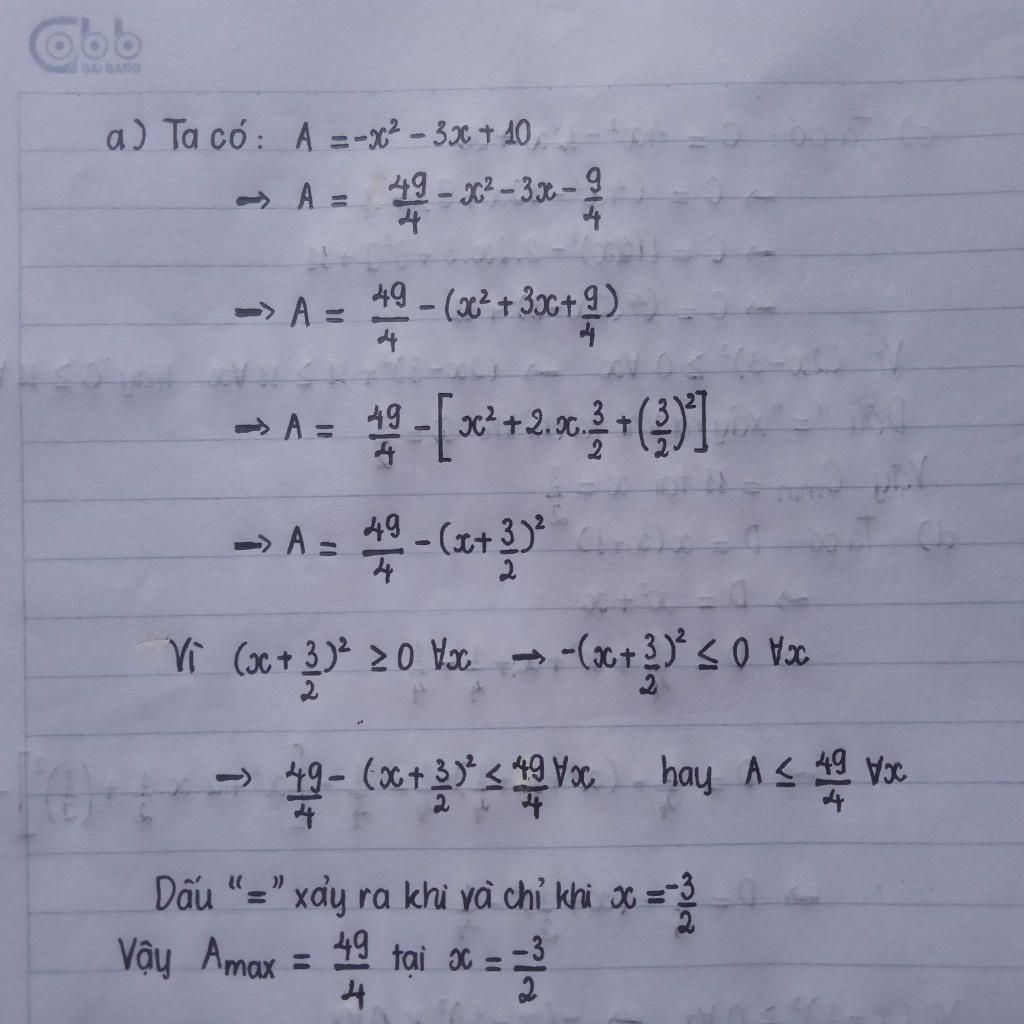 abb
BAI BANG
a) Ta có: A = -x² - 3x + 10
→ A = 49/4 - x² - 3x - 9/4
→ A = 49/4 - (x² + 3x + 9/4)
→ A = 49/4 - [x² + 2.x.3/2 + (3/2)²]
→ A = 49/4 - (x + 3/2)²
Vì (x + 3/2)² ≥ 0 ∀x → -(x + 3/2)² ≤ 0 ∀x
→ 49/4 - (x + 3/2)² ≤ 49/4 ∀x hay A ≤ 49/4 ∀x
Dấu "=" xảy ra khi và chỉ khi x = -3/2
Vậy Amax = 49/4 tại x = -3/2